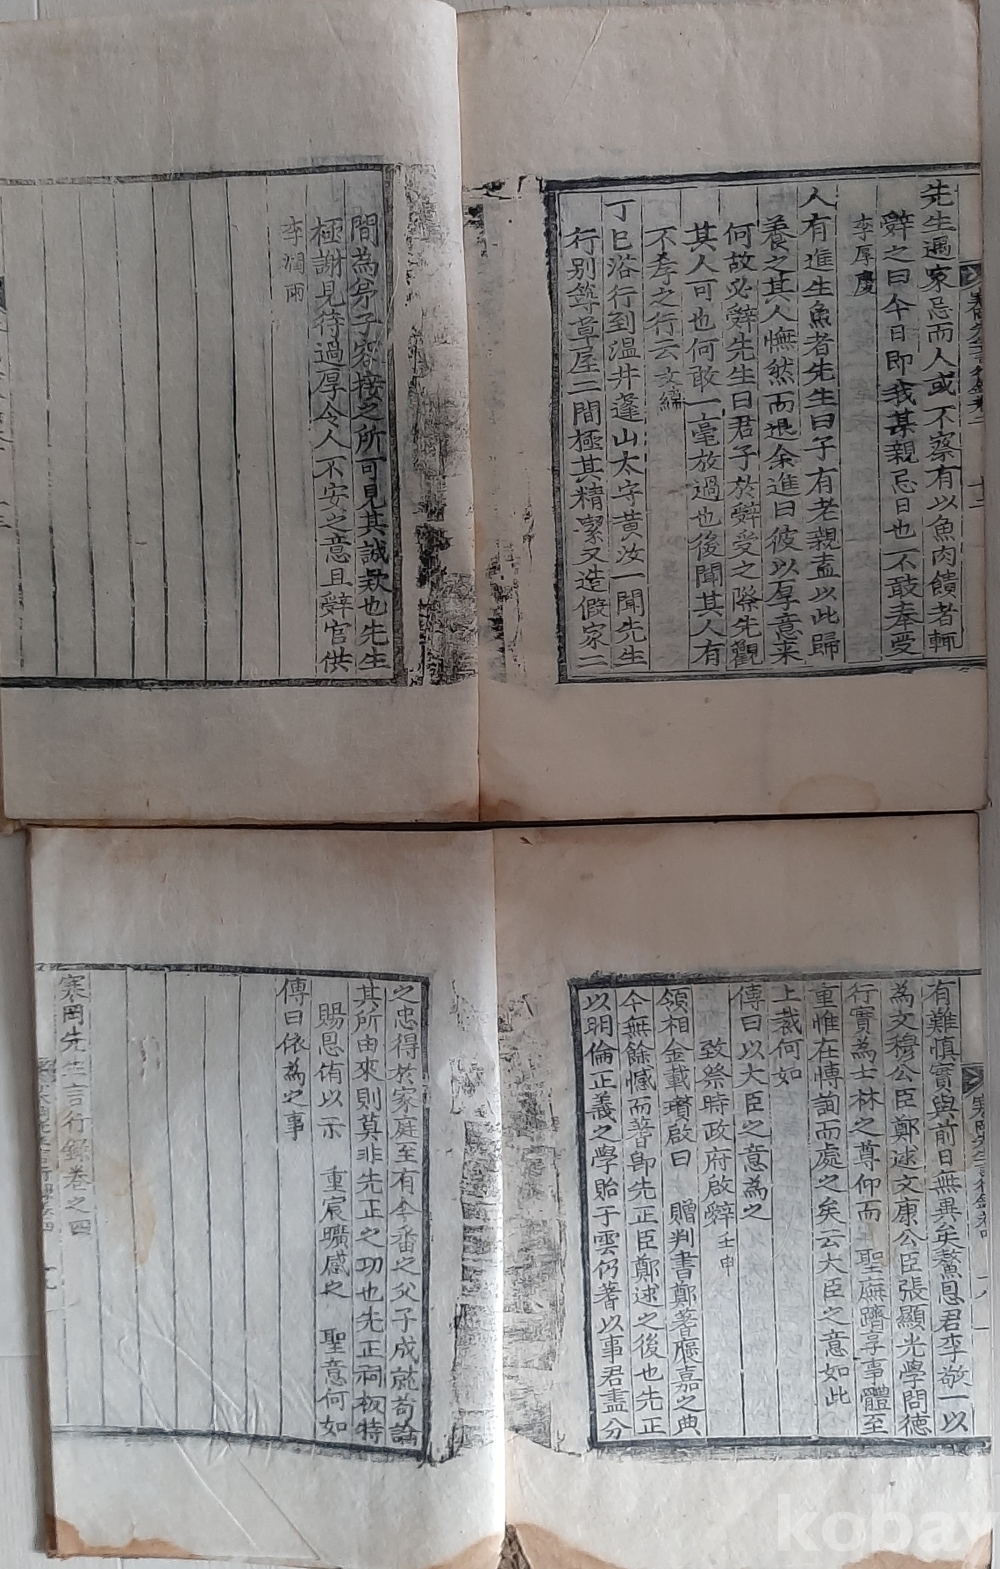 先生遇家忌而人或不察有以魚肉饋者輒
辭之曰今日即我某親忌日也不敢奉受
李厚慶
人有進生魚者先生曰子有老親盍以此歸
養之其人憮然而退余進曰彼以厚意来
何故必辭先生曰君子於辭受之際先觀
其人可也何敢一毫放過也後聞其人有
不孝之行云文緯
丁巳浴行到温井蓬山太守黄汝一聞先生
行別等草屋二間極其精潔又造假家二
間為弟子容接之所可見其誠欵也先生
極謝見待過厚令人不安之意且辭官供
李潤雨
有難慎實與前日無異矣鰲恩君李敬一以
為文穆公臣鄭逑文康公臣張顯光學問德
行實為士林之尊仰而 聖廡躋享事體至
重惟在博詢而處之矣云大臣之意如此
上裁何如
傳曰以大臣之意為之
致祭時政府啟辭壬申
領相金載瓚啟曰 贈判書鄭蓍褒嘉之典
今無餘憾而蓍卽先正臣鄭逑之後也先正
以明倫正義之學貽于雲仍蓍以事君盡分
之忠得於家庭至有今番之父子成就苟論
其所由來則莫非先正之功也先正祠板特
賜恩侑以示 重宸曠感之 聖意何如
傳曰依為之事
寒岡先生言行錄卷之四